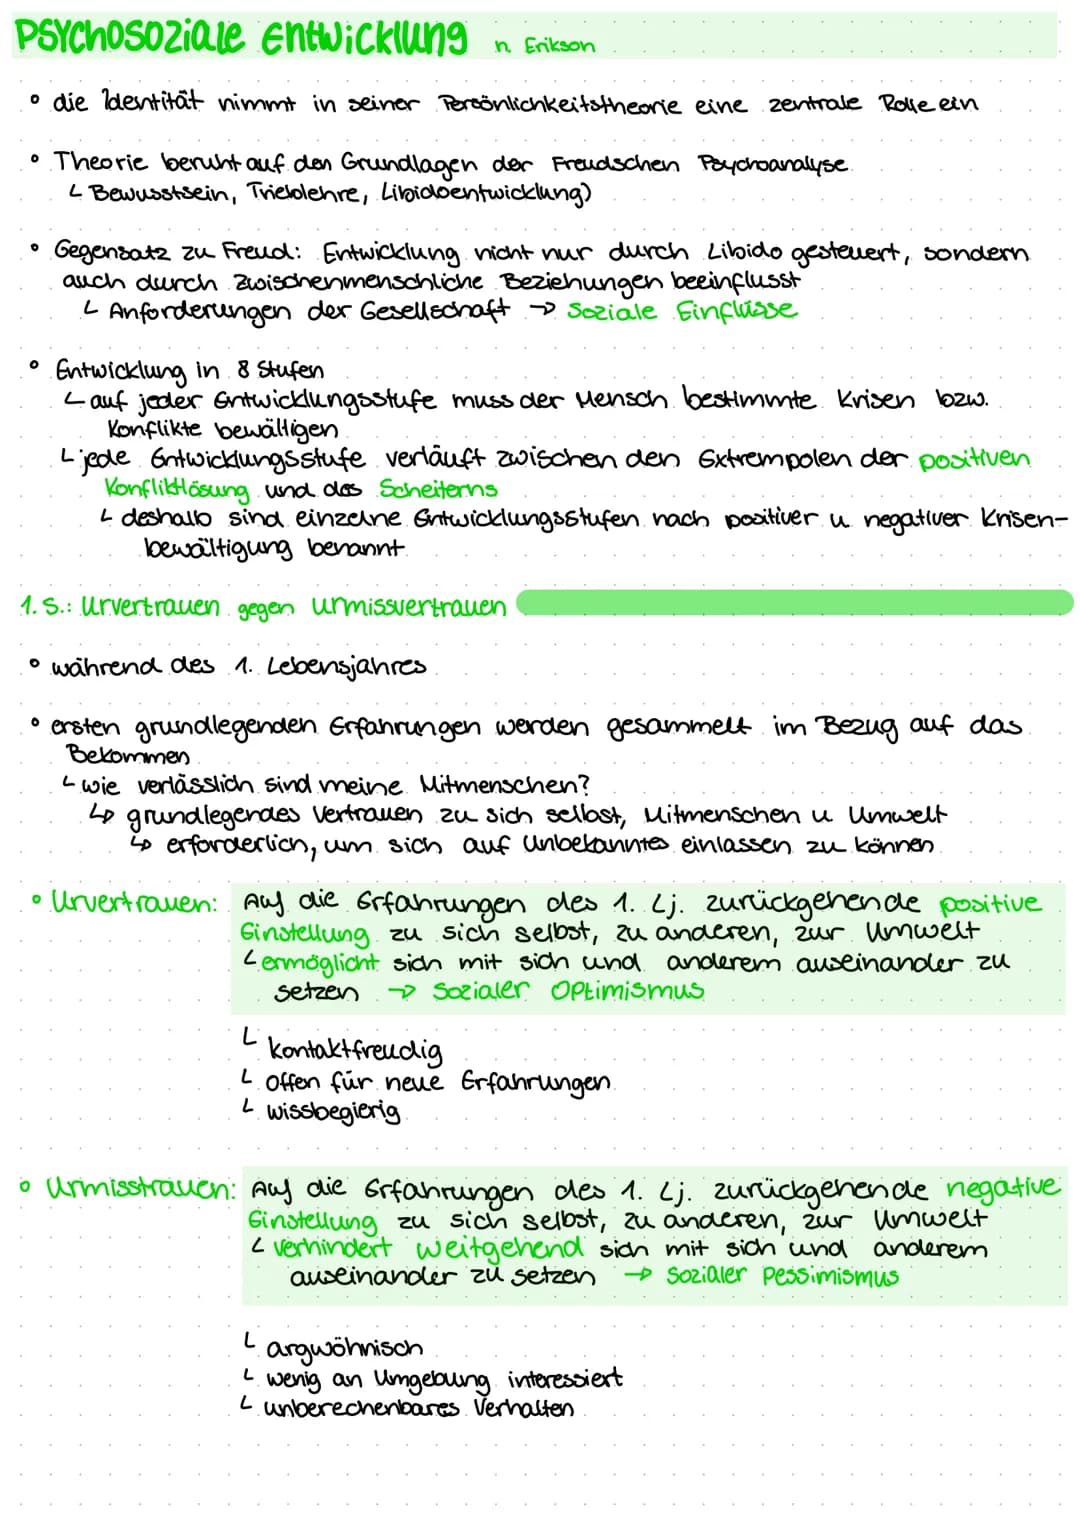 PSYCHOSOZIALE ENTWICKLUNG n. Erikson
° die Identität nimmt in seiner Persönlichkeitstheorie eine zentrale Rolle ein
° Theorie beruht auf den Grundlagen der Freudschen Psychoanalyse
└ Bewusstsein, Trieblehre, Libidoentwicklung)
° Gegensatz zu Freud: Entwicklung nicht nur durch Libido gesteuert, sondern
auch durch zwischenmenschliche Beziehungen beeinflusst
└ Anforderungen der Gesellschaft → Soziale Einflüsse
° Entwicklung in 8 Stufen
└ auf jeder Entwicklungsstufe muss der Mensch bestimmte Krisen bzw.
Konflikte bewältigen
└ jede Entwicklungsstufe verläuft zwischen den Extrempolen der positiven
Konfliktlösung und des Scheiterns
└ deshalb sind einzelne Entwicklungsstufen nach positiver u negativer Krisen-
bewältigung benannt
1. S.: Urvertrauen gegen Urmissvertrauen
° während des 1. Lebensjahres
° ersten grundlegenden Erfahrungen werden gesammelt im Bezug auf das
Bekommen
└ wie verlässlich sind meine Mitmenschen?
↳ grundlegendes Vertrauen zu sich selbst, Mitmenschen u Umwelt
↳ erforderlich, um sich auf Unbekanntes einlassen zu können
° Urvertrauen: Auf die Erfahrungen des 1. Lj. zurückgehende positive
Einstellung zu sich selbst, zu anderen, zur Umwelt
└ ermöglicht sich mit sich und anderem auseinander zu
setzen → Sozialer Optimismus
└ kontaktfreudig
└ offen für neue Erfahrungen
└ wissbegierig
° Urmisstrauen: Auf die Erfahrungen des 1. Lj. zurückgehende negative
Einstellung zu sich selbst, zu anderen, zur Umwelt
└ verhindert weitgehend sich mit sich und anderem
auseinander zu setzen → Sozialer Pessimismus
└ argwöhnisch
└ wenig an Umgebung interessiert
└ unberechenbares Verhalten